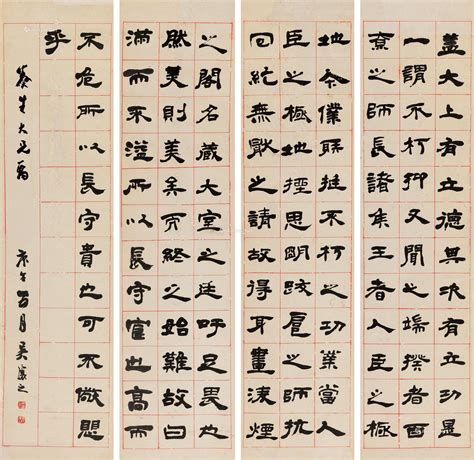 蓋大上有立德其次有立功是
一謂不朽抑又聞之端揆者百
寮之師長諸侯王者人臣之極
地今僕射挺不朽之功業當人
臣之極地挫思明跋扈之師抗
回紇無厭之請故得身畫凌煙
之閣名藏大室之廷吁足畏也
然美則美矣而終之始難故曰
滿而不溢所以長守富也高而
不危所以長守貴也可不儆懼
乎
生大兄屬
庚午月吳之